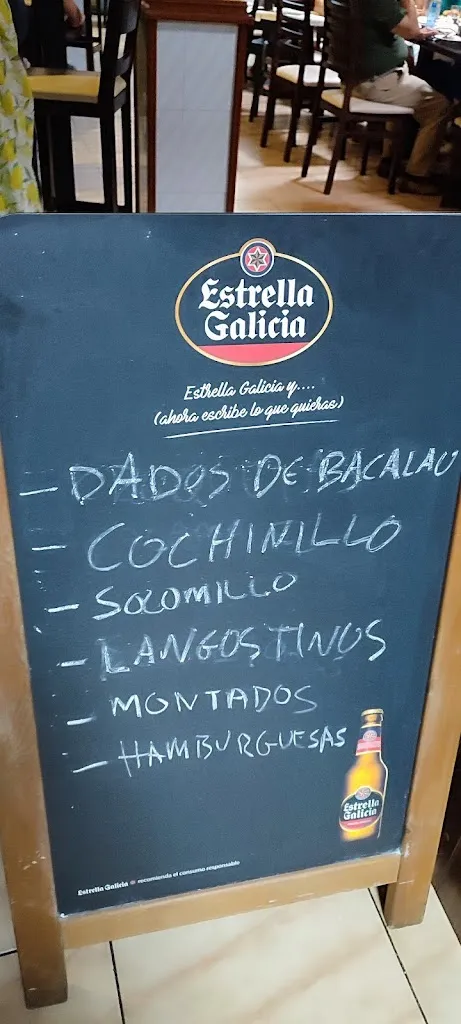 Estrella
Galicia
Estrella Galicia y....
(ahora escribe lo que quieras)
- DADOS DE BACALAU
- COCHINILLO
- SOLOMILLO
- LANGOSTINOS
- MONTADOS
- HAMBURGUESAS
Estrella
Galicia
Estrella Galicia recomienda el consumo responsable